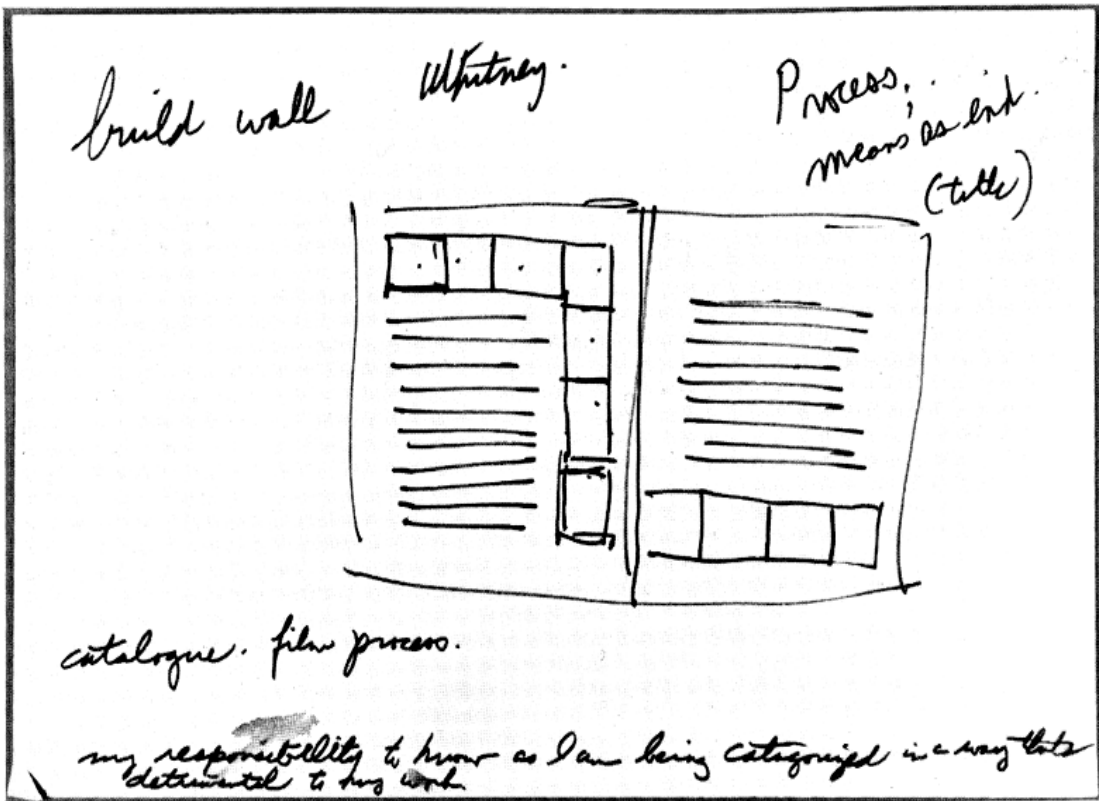 build wall
Whitney.
Process.
means as end.
(title)
catalogue. film process.
my responsibility to know as I am being catagorized in a way thats
detrimental to my work